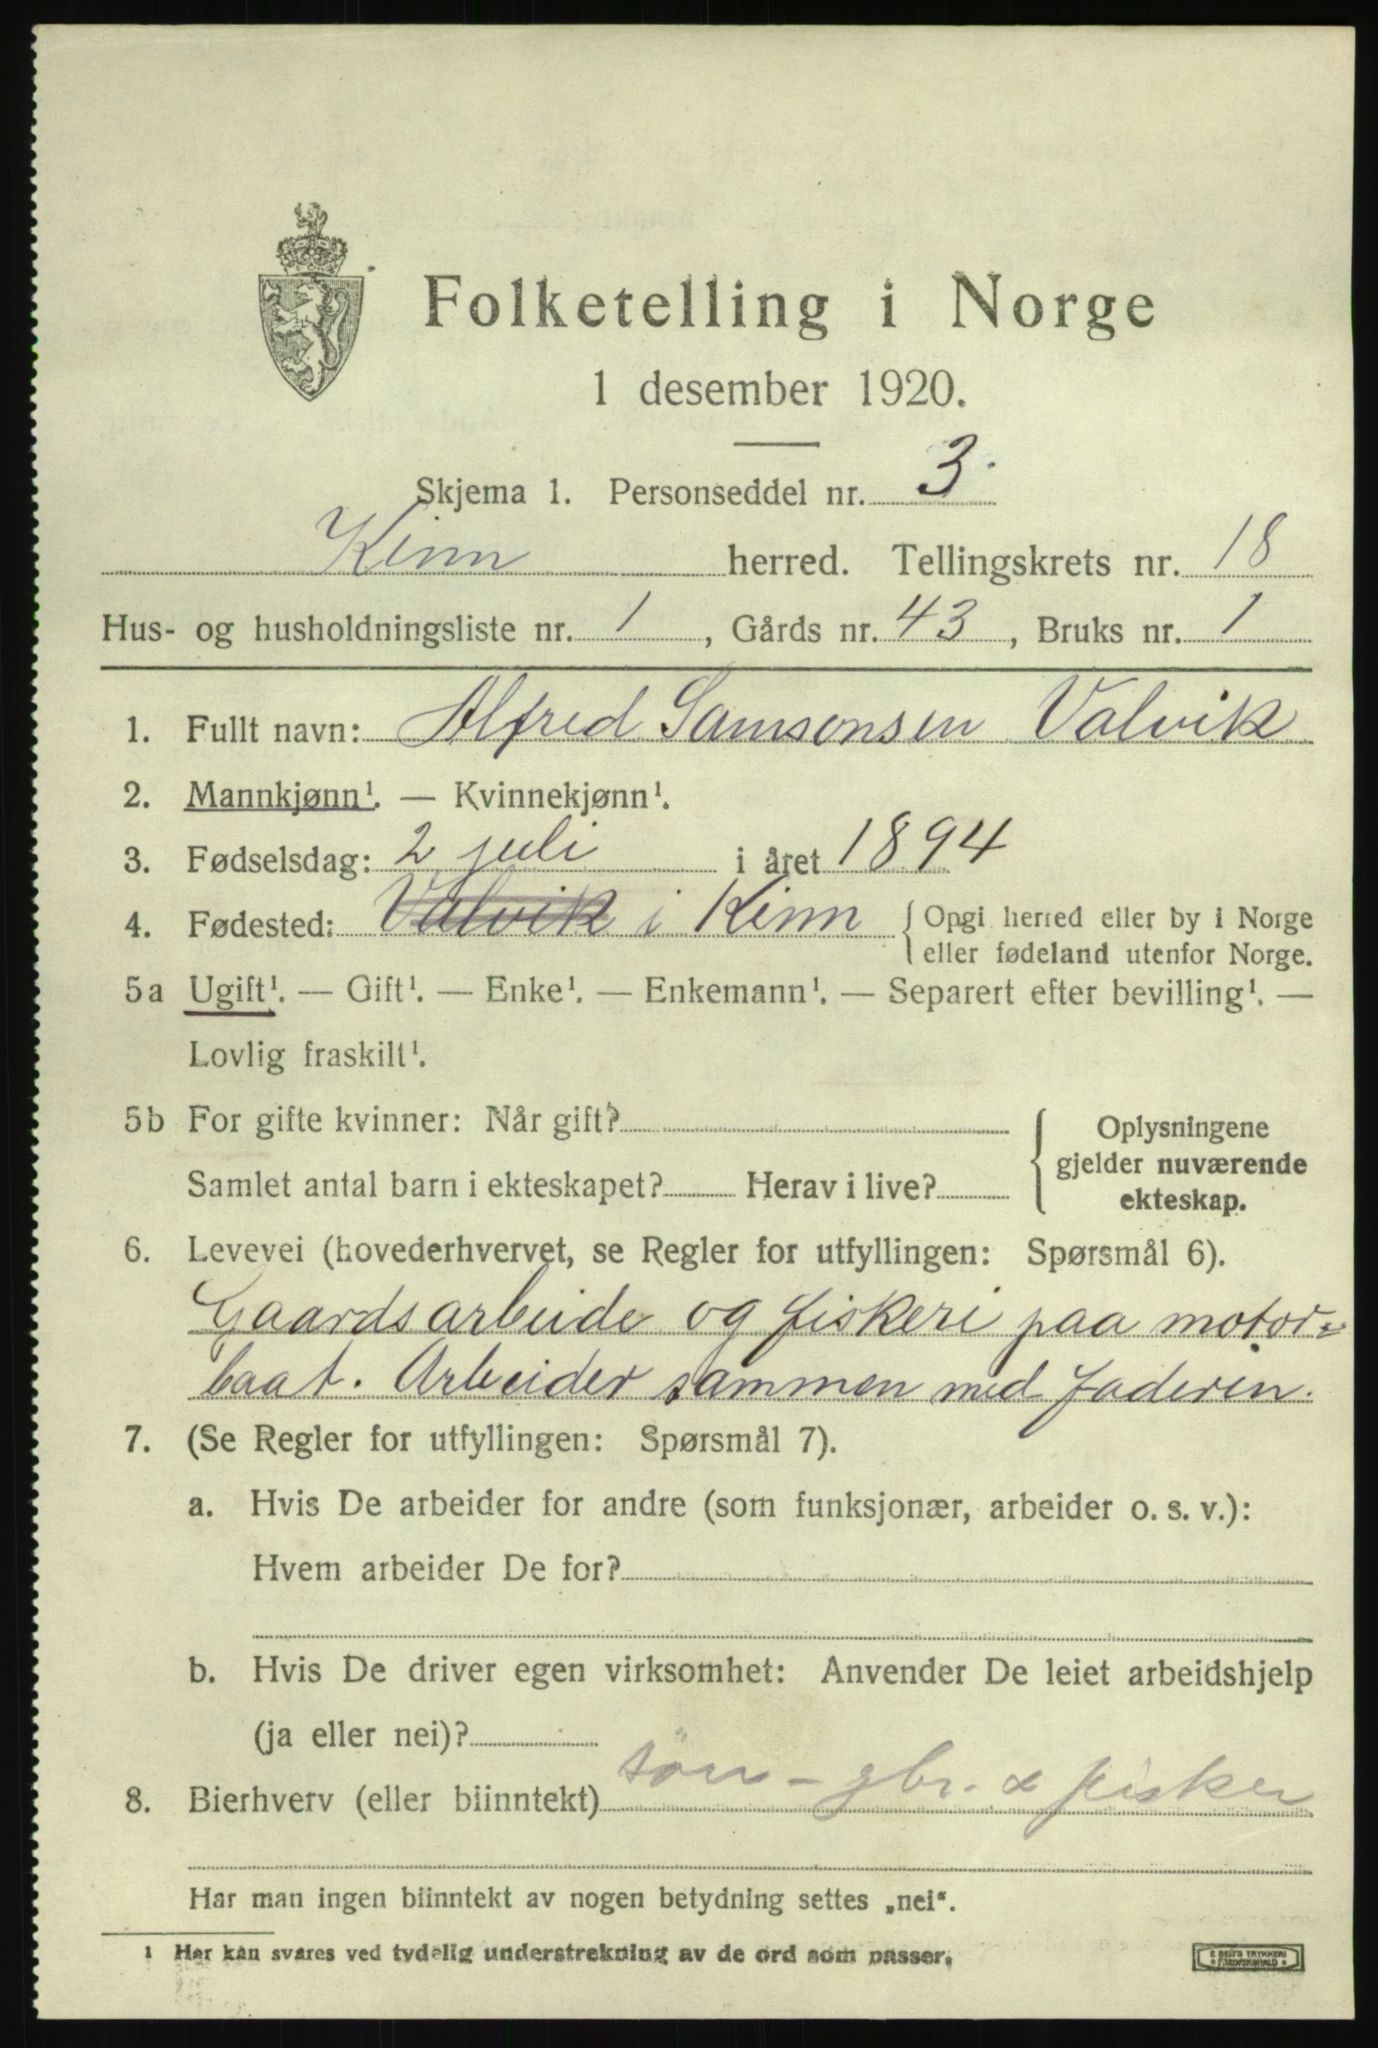 Folketelling i Norge
1 desember 1920.
Skjema 1. Personseddel nr. 3
Kinn herred. Tellingskrets nr. 18
Hus- og husholdningsliste nr. 1, Gårds nr. 43, Bruks nr. 1
1. Fullt navn: Alfred Samsonsen Valvik
2. Mannkjønn¹. — Kvinnekjønn¹.
3. Fødselsdag: 2 juli i året 1894
4. Fødested: Valvik i Kinn { Opgi herred eller by i Norge
eller fødeland utenfor Norge.
5a Ugift¹. — Gift¹. — Enke¹. — Enkemann¹. — Separert efter bevilling¹. —
Lovlig fraskilt¹.
5b For gifte kvinner: Når gift?
Samlet antal barn i ekteskapet? Herav i live?
{ Oplysningene
gjelder nuværende
ekteskap.
6. Levevei (hovederhvervet, se Regler for utfyllingen: Spørsmål 6).
Gaardsarbeide og fiskeri paa motor=
baat. Arbeider sammen med faderen.
7. (Se Regler for utfyllingen: Spørsmål 7).
a. Hvis De arbeider for andre (som funksjonær, arbeider o. s. v.):
Hvem arbeider De for?
b. Hvis De driver egen virksomhet: Anvender De leiet arbeidshjelp
(ja eller nei)?
søn - gbr. & fisker
8. Bierhverv (eller biinntekt)
Har man ingen biinntekt av nogen betydning settes „nei“.
1 Her kan svares ved tydelig understrekning av de ord som passer.